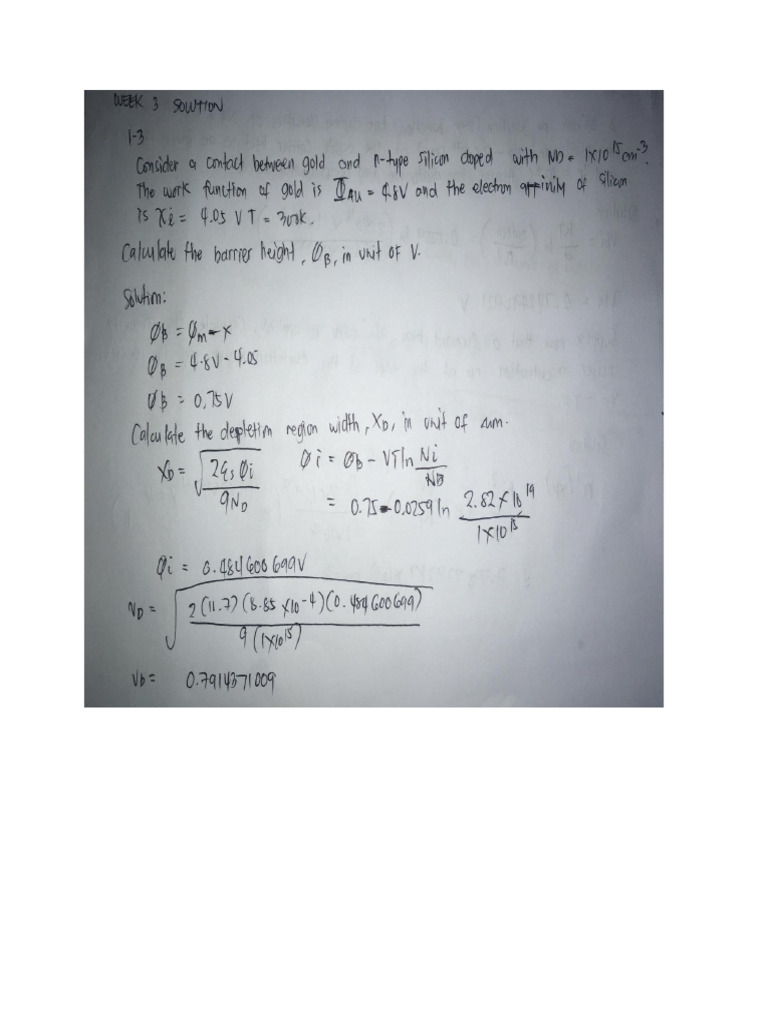 WEEK 3 SOLUTION
1-3
Consider a contact between gold and n-type silicon doped with ND = 1x10^15 cm^-3.
The work function of gold is Φ_Au = 4.8V and the electron affinity of silicon
is Xi = 4.05 V T = 300K.
Calculate the barrier height, Ø_B, in unit of V.
Solution:
Ø_B = Ø_m - x
Ø_B = 4.8V - 4.05
Ø_B = 0.75V
Calculate the depletion region width, X_D, in unit of um.
X_D = √(2ε_s Øi / qN_D) Øi = Ø_B - VT ln Ni/ND
= 0.75 - 0.0259 ln 2.82 x 10^19 / 1x10^15
Øi = 0.484600699V
N_D = √(2(11.7)(8.85 x10^-4)(0.484600699) / 9(1x10^15))
V_D = 0.7914371009